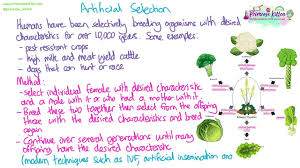 Artificial Selection
Primrose Kitten
Humans have been selectively breeding organisms with desired
characteristics for over 10,000 years. Some examples:
- pest resistant crops
- high milk and meat yield cattle
- dogs that can hunt or race
Method:
- select individual female with desired characteristic
and a male with it or who had a mother with it
- Breed these two together then select from the offspring
those with the desired characteristics and breed
again
- Continue over several generations until many
offspring have the desired characteristic
(modern techniques such as IVF, artificial insemination and